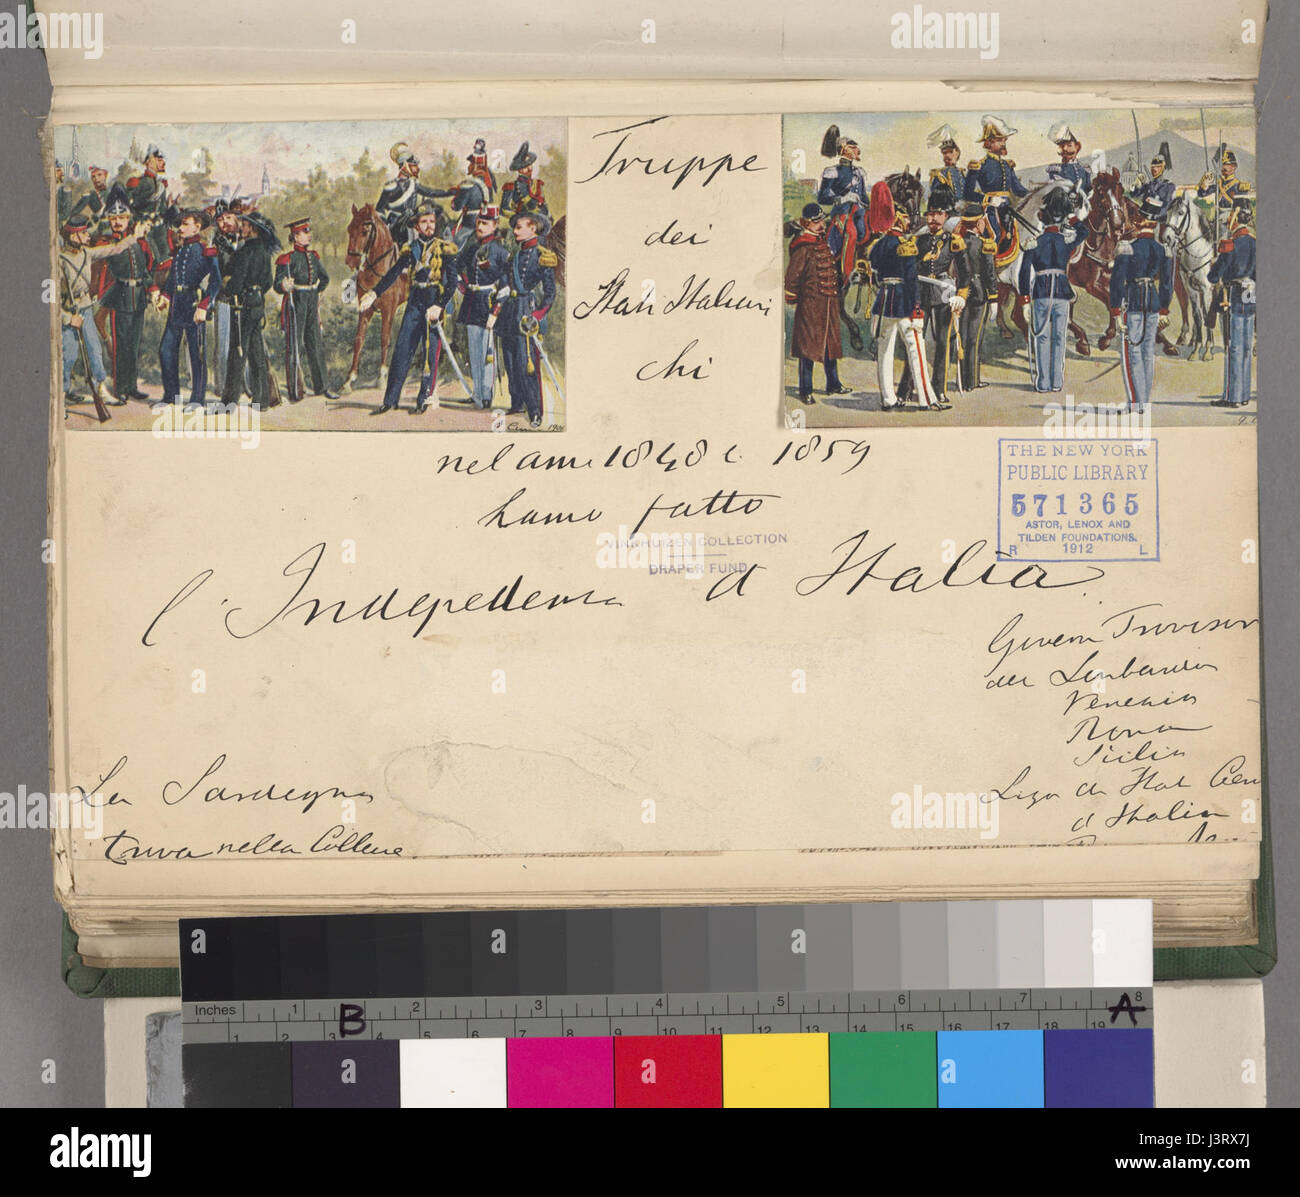 Truppe
dei
Stati Italiani
chi
nel anni 1848 e 1859
hanno fatto
l'Indepedenza d Italia
THE NEW YORK
PUBLIC LIBRARY
571365
ASTOR, LENOX AND
TILDEN FOUNDATIONS.
R 1912 L
VINKHUIZEN COLLECTION
DRAPER FUND
Govern Provisor
der Lombardia
Venezia
Roma
Sicilia
Liga di Stat Cen
d Italia
La Sardegna
trova nella Collene
1901
Inches 1 2 3 4 5 6 7 8
1 2 3 4 5 6 7 8 9 10 11 12 13 14 15 16 17 18 19
B A
alamy
Image ID: J3RX7J
www.alamy.com